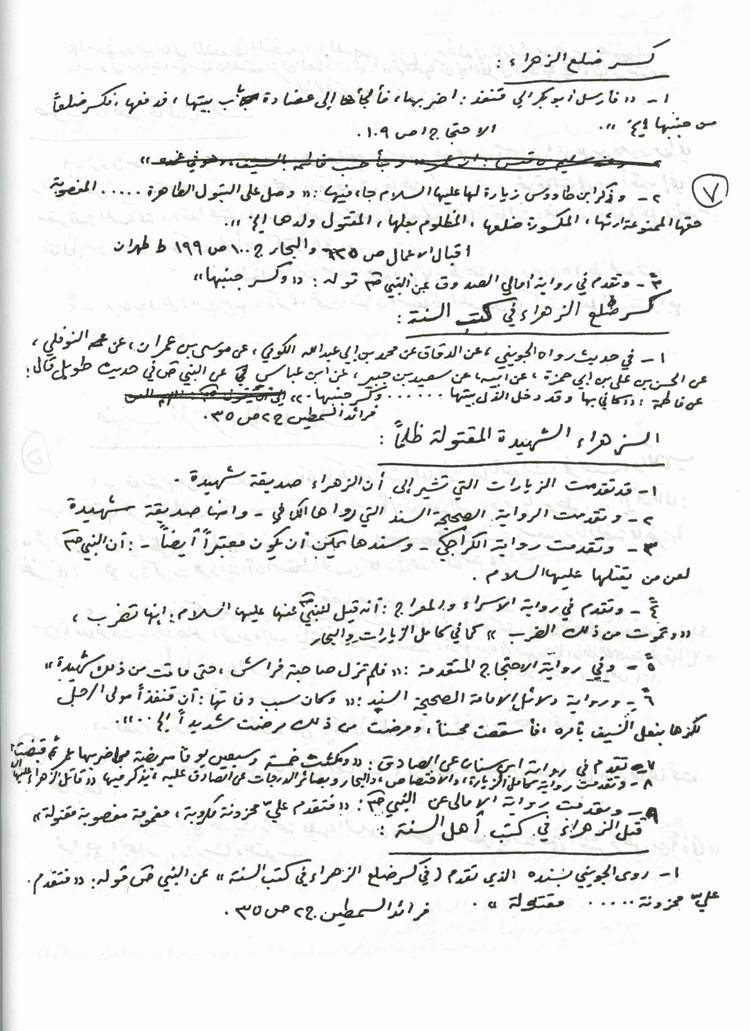 كسر ضلع الزهراء :
١- « فأرسل أبو بكر إلى قنفذ : اضربها، فألجأها إلى عضادة باب بيتها، فدفعها، فكسر ضلعاً
من جنبها إلخ ». الاحتجاج ١ ص ١٠٩.
٧
٢- وذكر ابن طاووس زيارة لها عليها السلام جاء فيها : « وصل على البتول الطاهرة ..... المغصوبة
حقها، الممنوعة ارثها، المكسورة ضلعها، المظلوم بعلها، المقتول ولدها إلخ ».
اقبال الاعمال ص ٦٢٥ والبحار ج ١٠٠ ص ١٩٩ ط طهران
٣- وتقدم في رواية أمالي الصدوق عن النبي ص قوله : « وكسر جنبها »
كسر ضلع الزهراء في كتب السنة :
١- في حديث رواه الجويني، عن الدقاق عن محمد بن أبي عبد الله الكوفي، عن موسى بن عمران، عن النوفلي،
عن الحسن بن علي بن أبي حمزة، عن أبيه، عن سعيد بن جبير، عن ابن عباس عن النبي ص في حديث طويل قال:
عن فاطمة : « كأني بها وقد دخل الذل بيتها ...... وكسر جنبها . »
فرائد السمطين ج ٢ ص ٣٥.
الزهراء الشهيدة المقتولة ظلماً :
١- قد تقدمت الزيارات التي تشير إلى أن الزهراء صديقة شهيدة .
٢- وتقدمت الرواية الصحيحة السند التي رواها الكافي - وأنها صديقة شهيدة
٣- وتقدمت رواية الكراجكي - وسندها يمكن أن يكون معتبراً أيضاً - : أن النبي ص
لعن من يقتلها عليها السلام .
٤- وتقدم في رواية الاسراء والمعراج : أنه قيل للنبي ص عنها عليها السلام : إنها تضرب ،
« وتموت من ذلك الضرب » كما في كامل الزيارات والبحار
٥- وفي رواية الاحتجاج المتقدمة : « فلم تزل صاحبة فراش، حتى ماتت من ذلك شهيدة »
٦- ورواية دلائل الامامة الصحيحة السند : « وكان سبب وفاتها : أن قنفذاً مولى الرجل
لكزها بنعل السيف بأمره، فأسقطت محسناً، ومرضت من ذلك مرضاً شديداً إلخ ...».
٧- وتقدم في رواية ابن سنان عن الصادق : « ومكثت خمسة وسبعين يوماً مريضة مما ضربها عمر ثم قبضت »
٨- وتقدمت رواية كامل الزيارة، والاختصاص، والبحار وبصائر الدرجات عن الصادق عليه ، يذكر فيها « قاتل الزهراء
٩- وتقدمت رواية الامالي عن النبي ص : « فتقدم علي محزونة مكروبة، مغمومة مغصوبة مقتولة »
قتل الزهراء في كتب أهل السنة :
١- روى الجويني بسنده الذي تقدم ( في كسر ضلع الزهراء في كتب السنة » عن النبي ص قوله : « فتقدم
علي محزونة ..... مقتولة ». فرائد السمطين ج ٢ ص ٣٥.